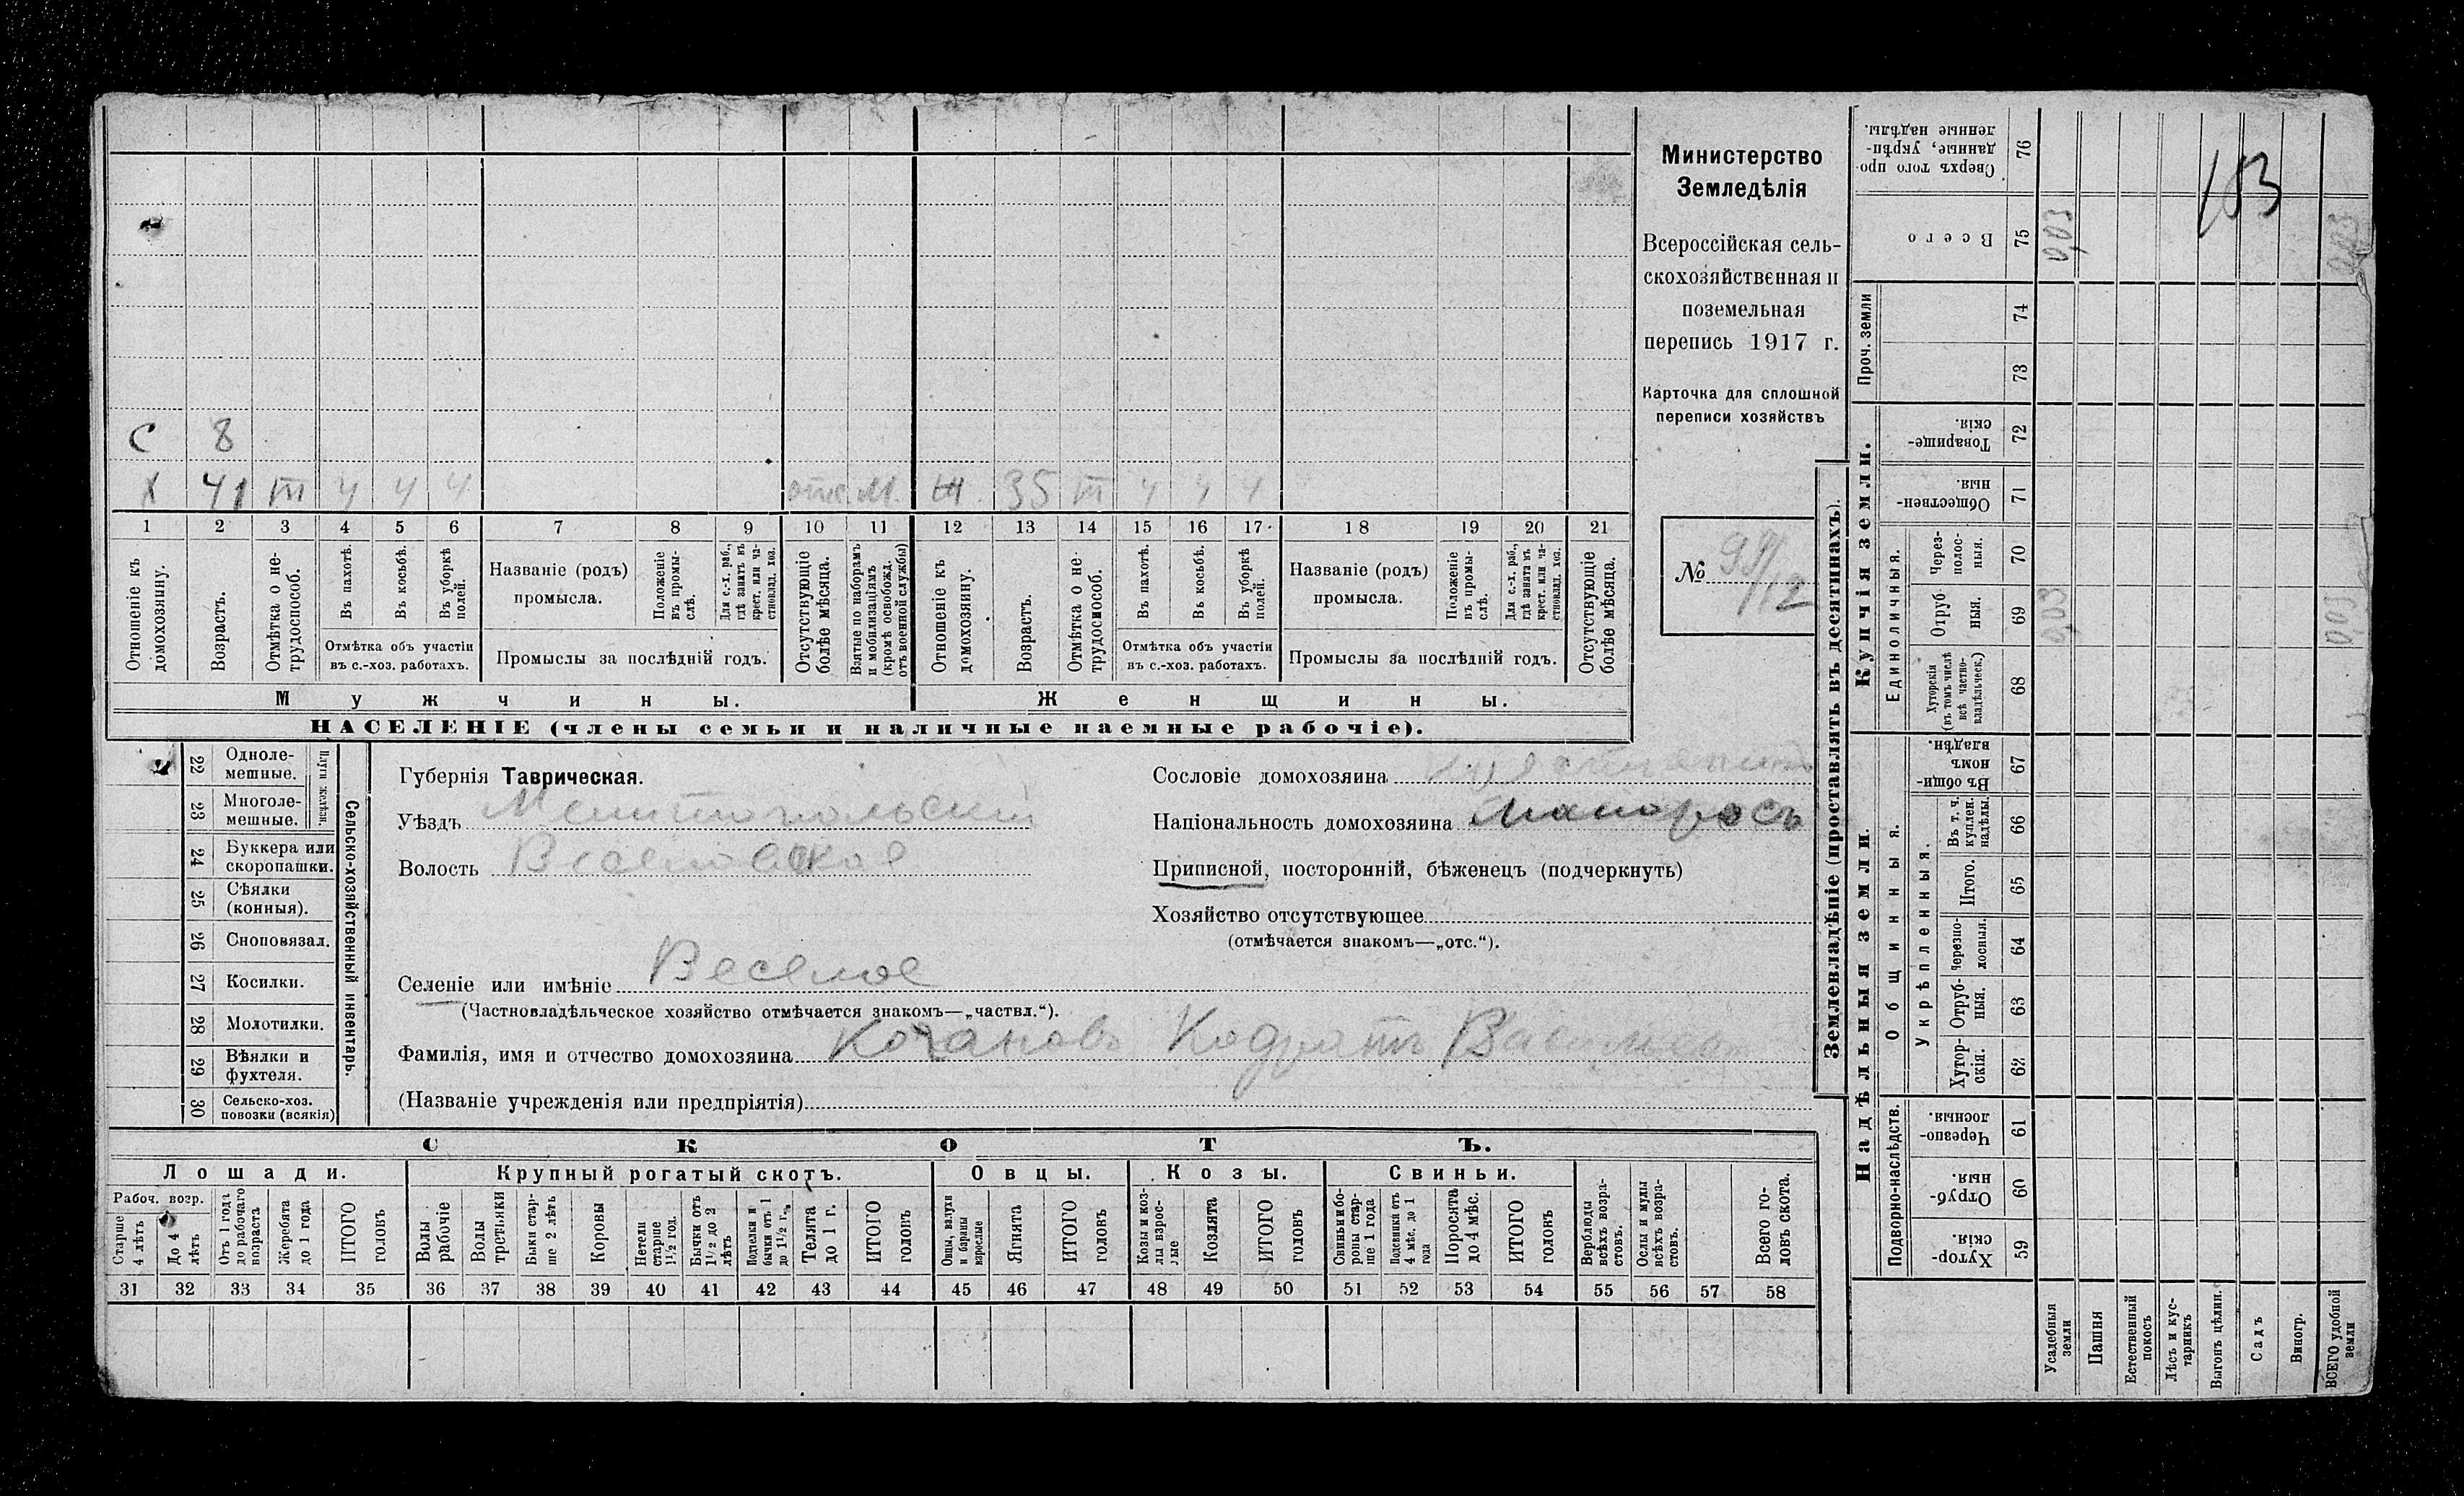 Министерство
Земледѣлія
Всероссійская сель-
скохозяйственная и
поземельная
перепись 1917 г.
Карточка для сплошной
переписи хозяйствъ
№ 99/12
С 8
Х 41 III Ч Ч Ч отс. М. Ж 35 III Ч Ч Ч
1 2 3 4 5 6 7 8 9 10 11 12 13 14 15 16 17 18 19 20 21
Отношеніе къ домохозяину.
Возрастъ.
Отмѣтка о не-трудоспособ.
Въ пахотѣ.
Въ косьбѣ.
Въ уборкѣ полей.
Отмѣтка объ участіи
въ с.-хоз. работахъ.
Названіе (родъ)
промысла.
Положеніе въ промы-слѣ.
Для с.-х. раб., гдѣ занятъ въ крест. или ча-стновлад. хоз.
Промыслы за послѣдній годъ.
Отсутствующіе болѣе мѣсяца.
Взятые по наборамъ и мобилизаціямъ (кромѣ освобожд. отъ военной службы)
Отношеніе къ домохозяину.
Возрастъ.
Отмѣтка о не трудоспособ.
Въ пахотѣ.
Въ косьбѣ.
Въ уборкѣ полей.
Отмѣтка объ участіи
въ с.-хоз. работахъ.
Названіе (родъ)
промысла.
Положеніе въ промы-слѣ.
Для с.-х. раб., гдѣ занята въ крест. или ча-стновлад. хоз.
Промыслы за послѣдній годъ.
Отсутствующіе болѣе мѣсяца.
Мужчины.
Женщины.
НАСЕЛЕНІЕ (члены семьи и наличные наемные рабочіе).
22 Одноле-мешные.
23 Многоле-мешные.
Плуги желѣзн.
24 Буккера или скоропашки.
25 Сѣялки (конныя).
26 Сноповязал.
27 Косилки.
28 Молотилки.
29 Вѣялки и фухтеля.
30 Сельско-хоз. повозки (всякія)
Сельско-хозяйственный инвентарь.
Губернія Таврическая.
Уѣздъ Мелитопольскій
Волость Веселовская
Селеніе или имѣніе Веселое
(Частновладѣльческое хозяйство отмѣчается знакомъ—„частвл.“).
Фамилія, имя и отчество домохозяина Кочановъ Кодратъ
(Названіе учрежденія или предпріятія)
Сословіе домохозяина
Національность домохозяина Малоросъ
Приписной, посторонній, бѣженецъ (подчеркнуть)
Хозяйство отсутствующее
(отмѣчается знакомъ—„отс.“).
СКОТЪ.
Лошади.
Крупный рогатый скотъ.
Овцы.
Козы.
Свиньи.
Рабоч. возр.
Старше 4 лѣтъ
До 4 лѣтъ
Отъ 1 года до рабочаго возраста
Жеребята до 1 года
ИТОГО головъ
Волы рабочіе
Волы третьяки
Быки стар-ше 2 лѣтъ
Коровы
Нетели старше 1½ год.
Бычки отъ 1½ до 2 лѣтъ
Подтелки и бычки отъ 1 до 1½ г.
Телята до 1 г.
ИТОГО головъ
Овцы, валухи и бараны взрослые
Ягнята
ИТОГО головъ
Козы и коз-лы взрос-лые
Козлята
ИТОГО головъ
Свиньи и бо-ровы стар-ше 1 года
Подсвинки отъ 4 мѣс. до 1 года
Поросята до 4 мѣс.
ИТОГО головъ
Верблюды всѣхъ возра-стовъ.
Ослы и мулы всѣхъ возра-стовъ.
Всего го-ловъ скота.
31 32 33 34 35 36 37 38 39 40 41 42 43 44 45 46 47 48 49 50 51 52 53 54 55 56 57 58
Землевладѣніе (проставлять въ десятинахъ).
Купчія земли.
Надѣльныя земли.
Сверхъ того про-данные, укрѣп-ленные надѣлы. 76
Всего 75
0,03
0,03
153
Проч. земли
74
73
Товарище-скія. 72
Обществен-ныя. 71
Единоличныя.
Через-полос-ныя. 70
Отруб-ныя. 69
0,03
0,03
Хуторскія (въ томъ числѣ всѣ частно-владѣльческ.) 68
Общинныя.
Въ общи-номъ владѣн. 67
Укрѣпленныя.
Въ т. ч. куплен. надѣлы. 66
Итого. 65
Черезпо-лосныя. 64
Отруб-ныя. 63
Хутор-скія. 62
Подворно-наслѣдств.
Черезпо-лосныя. 61
Отруб-ныя. 60
Хутор-скія. 59
Усадебныя земли
Пашня
Естественный покосъ
Лѣсъ и кус-тарникъ
Выгонъ цѣлин.
Садъ
Виногр.
ВСЕГО удобной земли